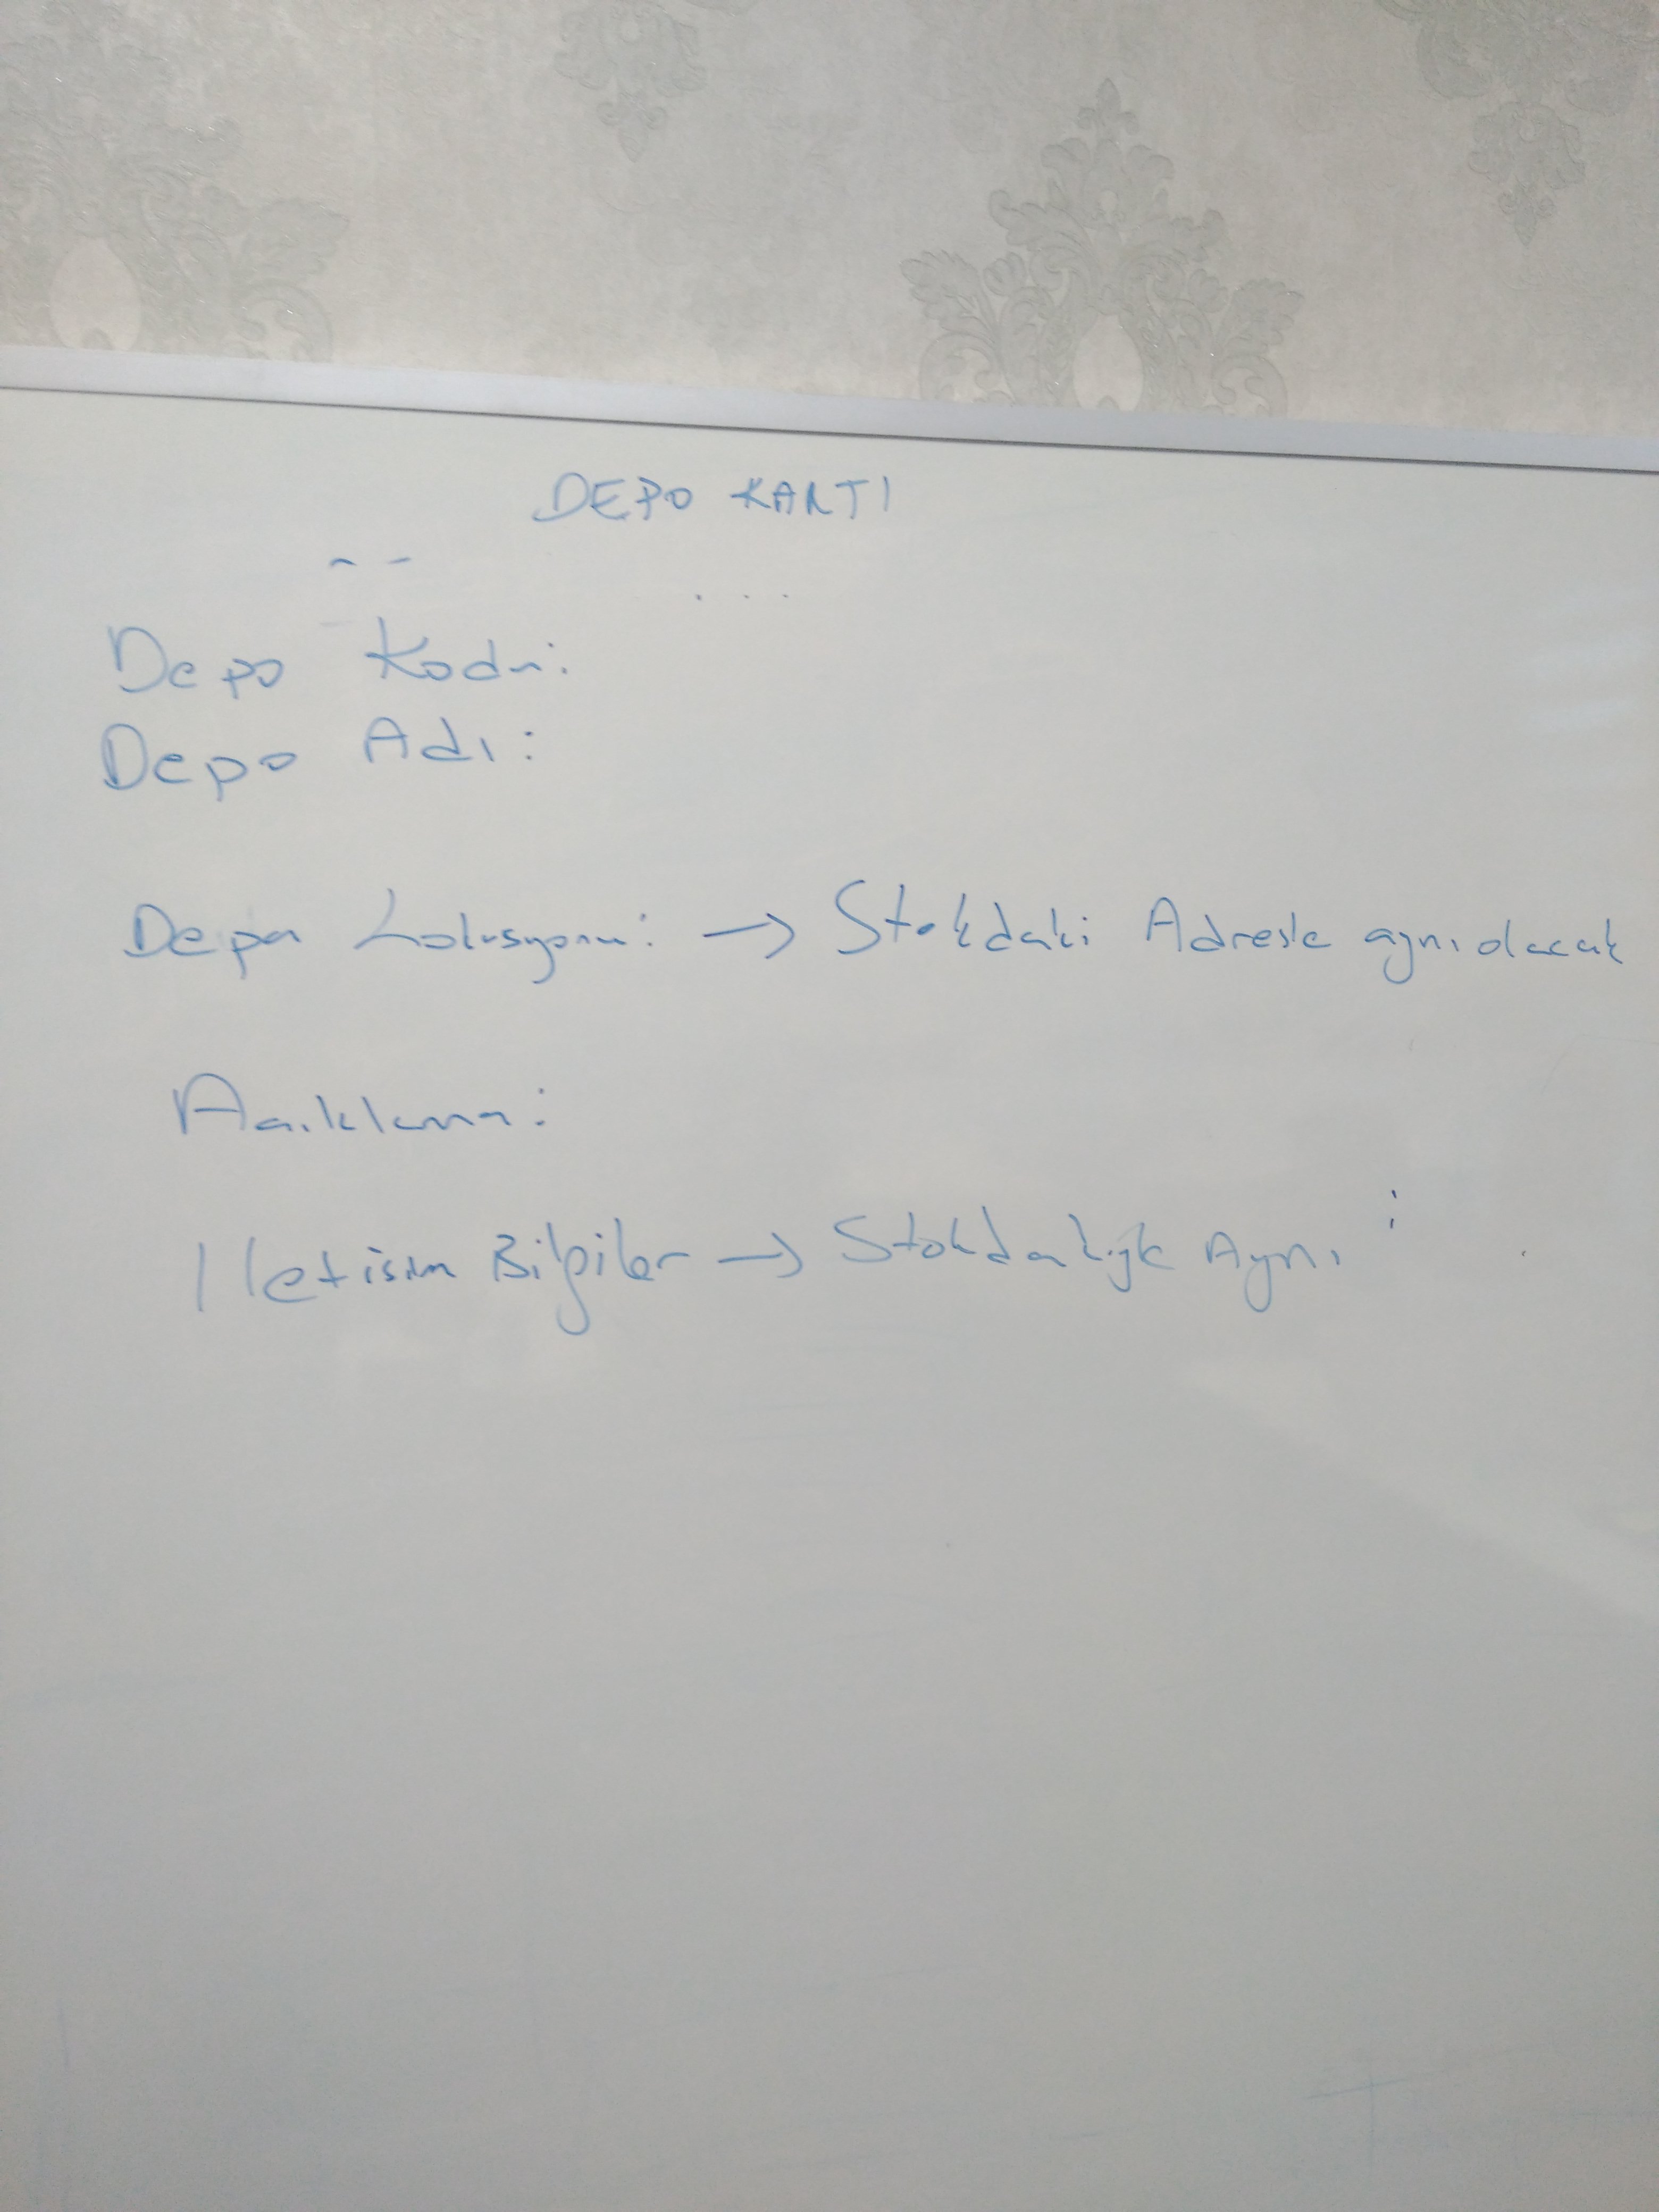 DEPO KARTI
Depo Kodu:
Depo Adı:
Depo Lokasyonu: → Stokdaki Adresle aynı olacak
Açıklama:
Iletisim Bilgiler → Stokdakiyle Aynı